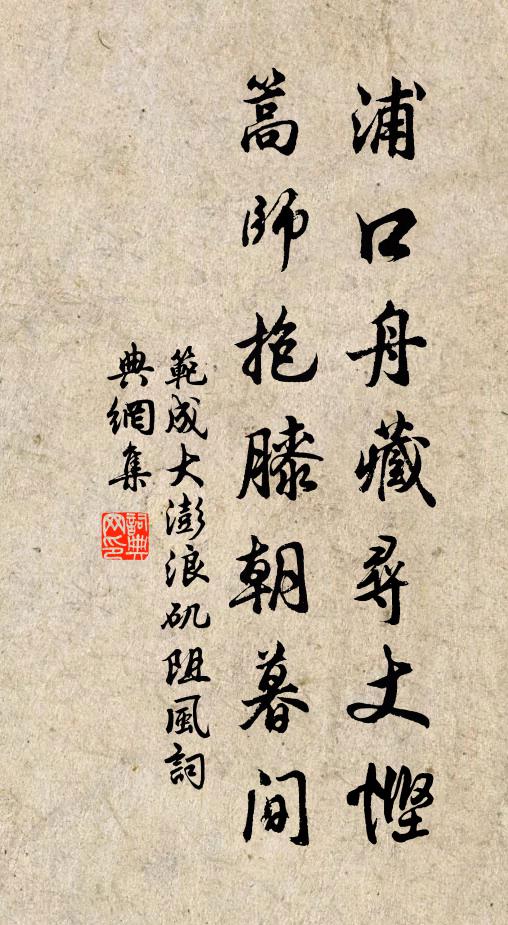 浦口舟藏尋丈慳
篙師抱膝朝暮间
範成大澎浪矶阻風詞
典網集
詞典网印